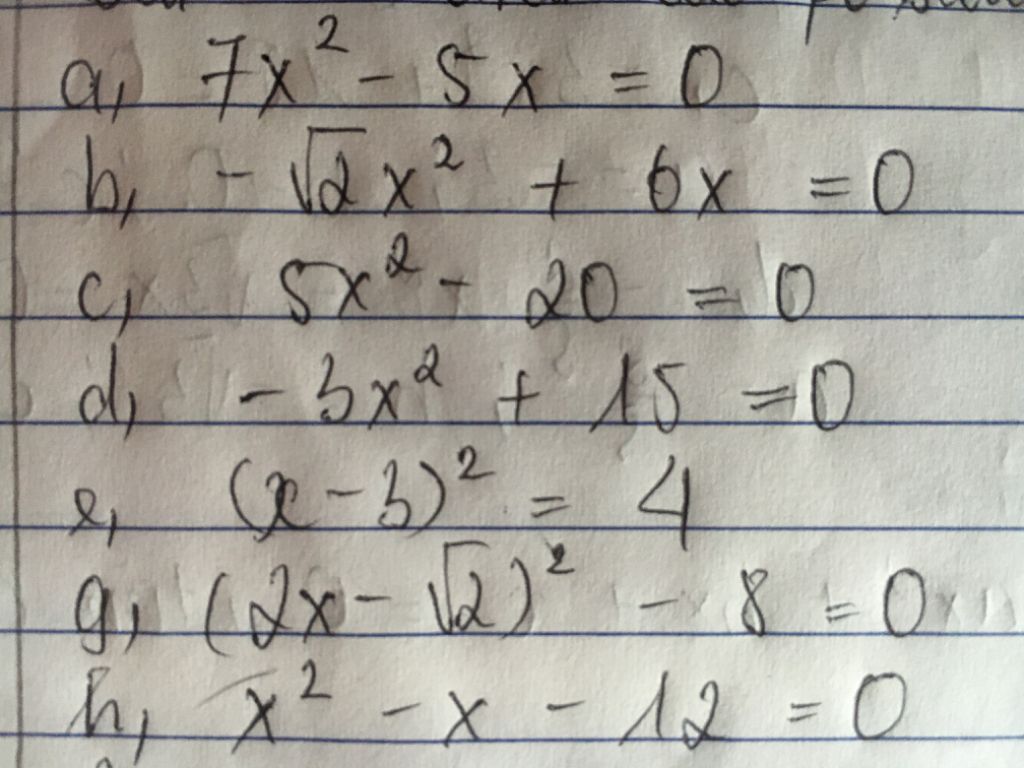 a, 7x² - 5x = 0
b, - √2x² + 6x = 0
c, 5x² - 20 = 0
d, - 3x² + 15 = 0
e, (x - 3)² = 4
g, (2x - √2)² - 8 = 0
h, x² - x - 12 = 0